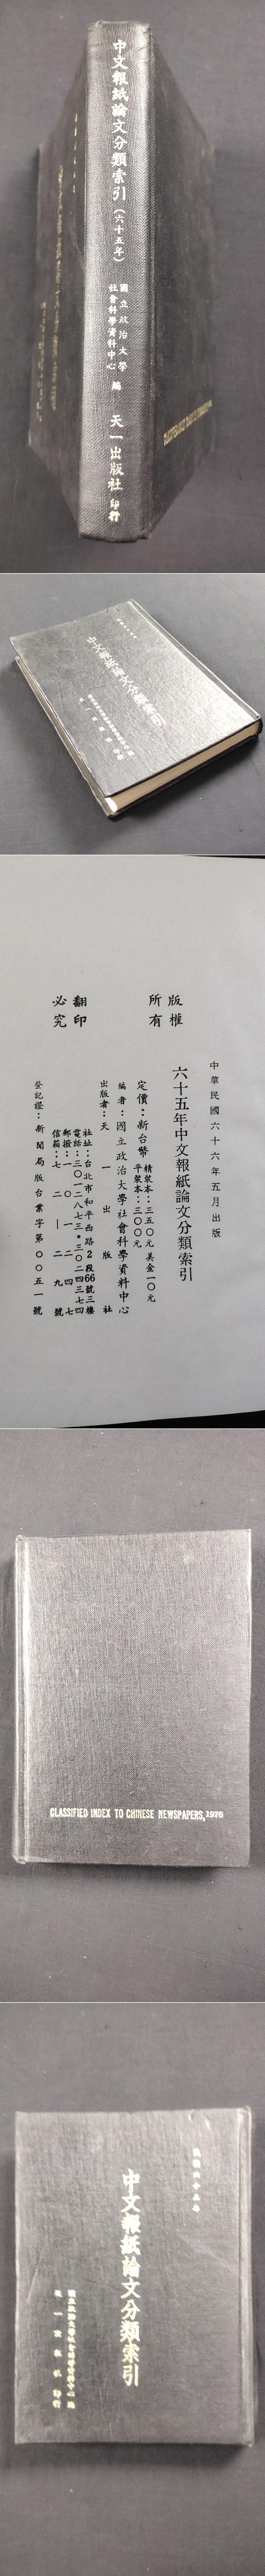 中文報紙論文分類索引(六十五年)
國立政治大學
社會科學資料中心 編
天一出版社 印行
中文報紙論文分類索引
中華民國六十六年五月出版
六十五年中文報紙論文分類索引
版權
所有
翻印
必究
定價:新台幣
精裝本:三五〇元 美金一〇元
平裝本:三〇〇元
編者:國立政治大學社會科學資料中心
出版者:天一出版社
社址:台北市和平西路2段66號三樓
電話:三〇一二八七三•三〇二四三七四
郵撥:一〇一二四七
信箱:七二—二九號
登記證:新聞局版台業字第〇〇五一號
CLASSIFIED INDEX TO CHINESE NEWSPAPERS, 1976
民國六十五年
中文報紙論文分類索引
國立政治大學社會科學資料中心 編
天一出版社 印行